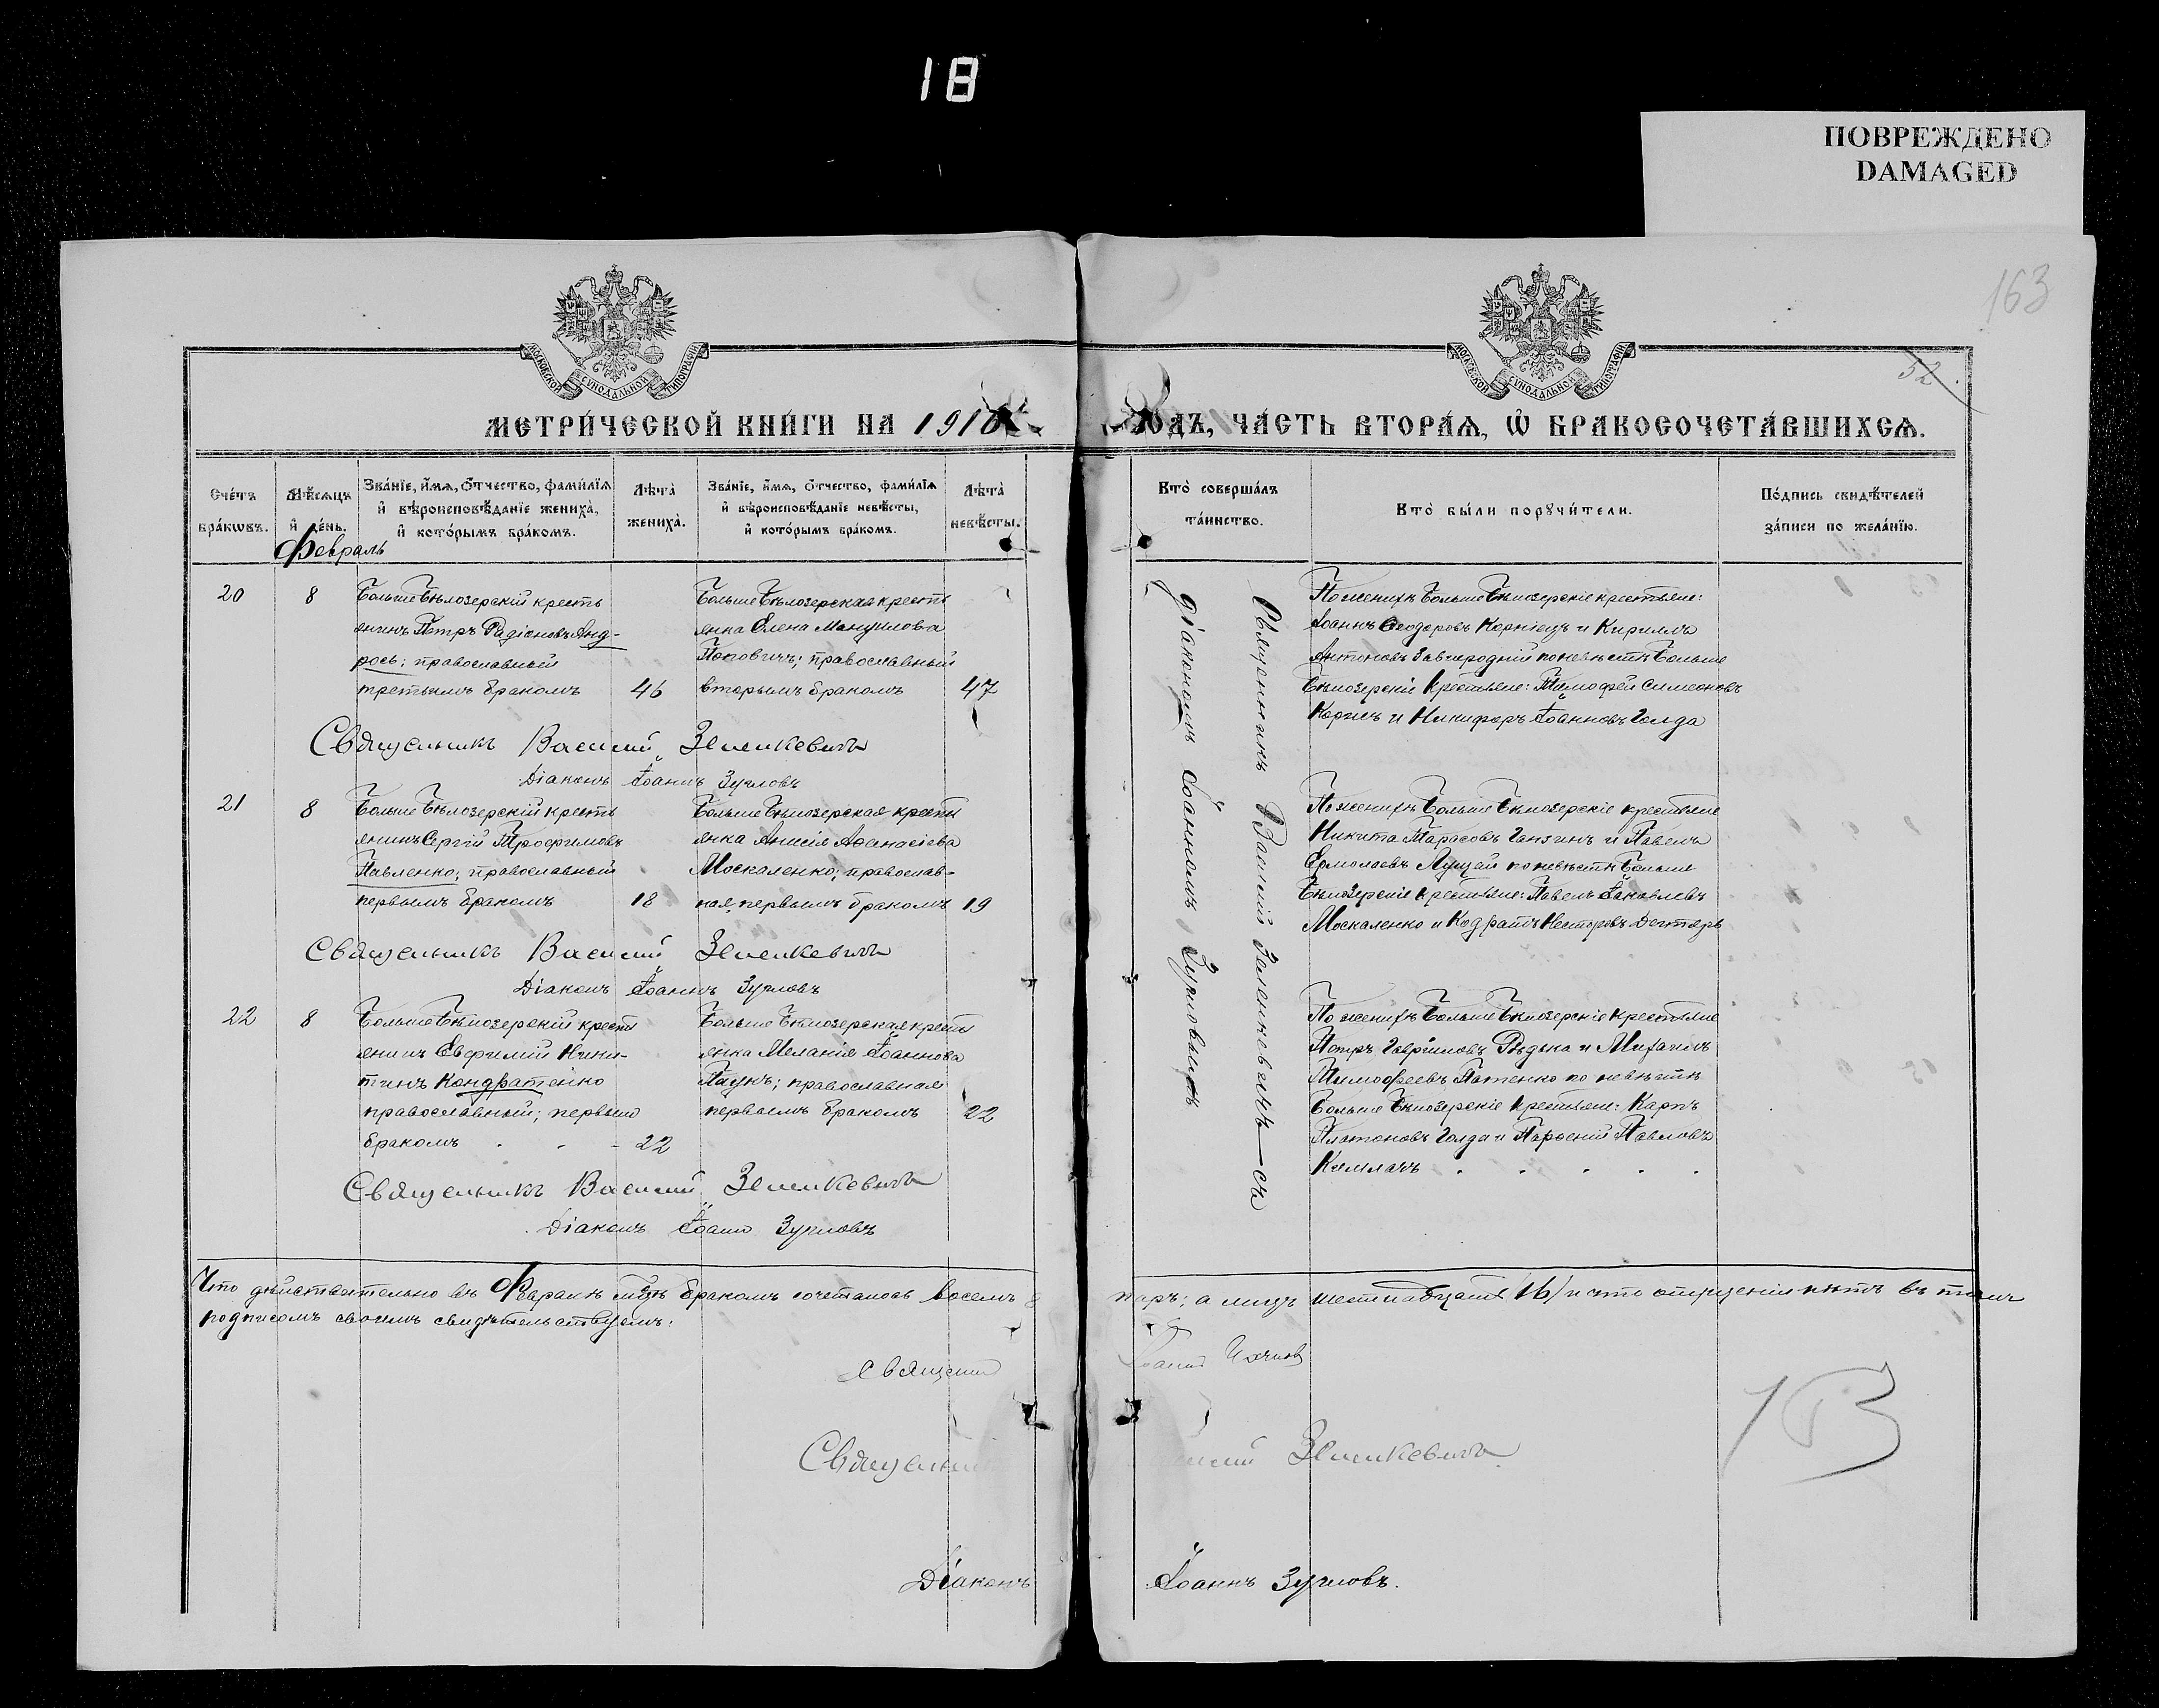 18
ПОВРЕЖДЕНО
DAMAGED
163
52
МОСКОВСКОЙ СѴНОДАЛЬНОЙ ТИПОГРАФІИ
МОСКОВСКОЙ СѴНОДАЛЬНОЙ ТИПОГРАФІИ
МЕТРИ́ЧЕСКОЙ КНИ́ГИ НА 1910
ГОДЪ, ЧА́СТЬ ВТОРА́Ѧ, Ѡ҆ БРАКОСОЧЕТА́ВШИХСѦ.
Сче́тъ бра́кѡвъ.
Мѣ́сѧцъ и҆ де́нь.
Зва́нїе, и҆́мѧ, ѻ҆́тчество, фами́лїѧ и҆ вѣроисповѣ́данїе жениха̀, и҆ кото́рымъ бра́комъ.
Лѣта̀ жениха̀.
Зва́нїе, и҆́мѧ, ѻ҆́тчество, фами́лїѧ и҆ вѣроисповѣ́данїе невѣ́сты, и҆ кото́рымъ бра́комъ.
Лѣта̀ невѣ́сты.
Кто̀ соверша́лъ та́инство.
Кто̀ бы́ли порꙋчи́тели.
По́дпись свидѣ́телей за́писи по жела́нїю.
Февраль
20
8
Больше Бѣлозерскій кресть
янинъ Петръ Радіоновъ Анд-
рось; православный
третьимъ бракомъ
46
Больше Бѣлозерская кресть
янка Елена Мануилова
Попович; православный
вторымъ бракомъ
47
Священникомъ Василій Зеленкевичемъ—съ
діакономъ Іоанномъ Зугловымъ
По женихѣ Больше Бѣлозерскіе крестьяне:
Іоаннъ Ѳеодоровъ Корніецъ и Кириллъ
Антоновъ Завгородній по невѣстѣ Больше
Бѣлозерскіе крестьяне: Тимофей Симеоновъ
и Никифоръ Іоанновъ Голда
Священникъ Василій Зеленкевичъ
Діаконъ Іоаннъ Зугловъ
21
8
Больше Бѣлозерскій кресть
янинъ Сергій Трофимовъ
Павленко; православный
первымъ бракомъ
18
Больше Бѣлозерская кресть
янка Анисія Аѳанасіева
Москаленко; православ-
ная, первымъ бракомъ
19
По женихѣ Больше Бѣлозерскіе крестьяне
Никита Тарасовъ и Павелъ
Ермолаевъ Лущай по невѣстѣ Больше
Бѣлозерскіе крестьяне: Павелъ Іаковлевъ
Москаленко и Кодратъ Несторовъ Дегтярь
Священникъ Василій Зеленкевичъ
Діаконъ Іоаннъ Зугловъ
22
8
Больше Бѣлозерскій кресть
янинъ Евфимій Ники-
тинъ Кондратенко
православный; первымъ
бракомъ - 22
Больше Бѣлозерская кресть
янка Меланія Іоаннова
Паукъ; православная
первымъ бракомъ
22
По женихѣ Больше Бѣлозерскіе крестьяне
Петръ Гавріиловъ Рѣдька и Михаилъ
Тимофеевъ Патенко по невѣстѣ
Больше Бѣлозерскіе крестьяне: Карпъ
Платоновъ Голда и Парѳеній Павловъ
Священникъ Василій Зеленкевичъ
Діаконъ Іоаннъ Зугловъ
Что дѣйствительно въ Февралѣ м-цѣ бракомъ сочеталось восемь 8 паръ; а лицъ шестнадцать /16/ и что опущенія нѣтъ въ томъ
подписомъ своимъ свидѣтельствуемъ:
Священ Іоаннъ
Священник силій Зеленкевичъ
Діаконъ Іоаннъ Зугловъ.